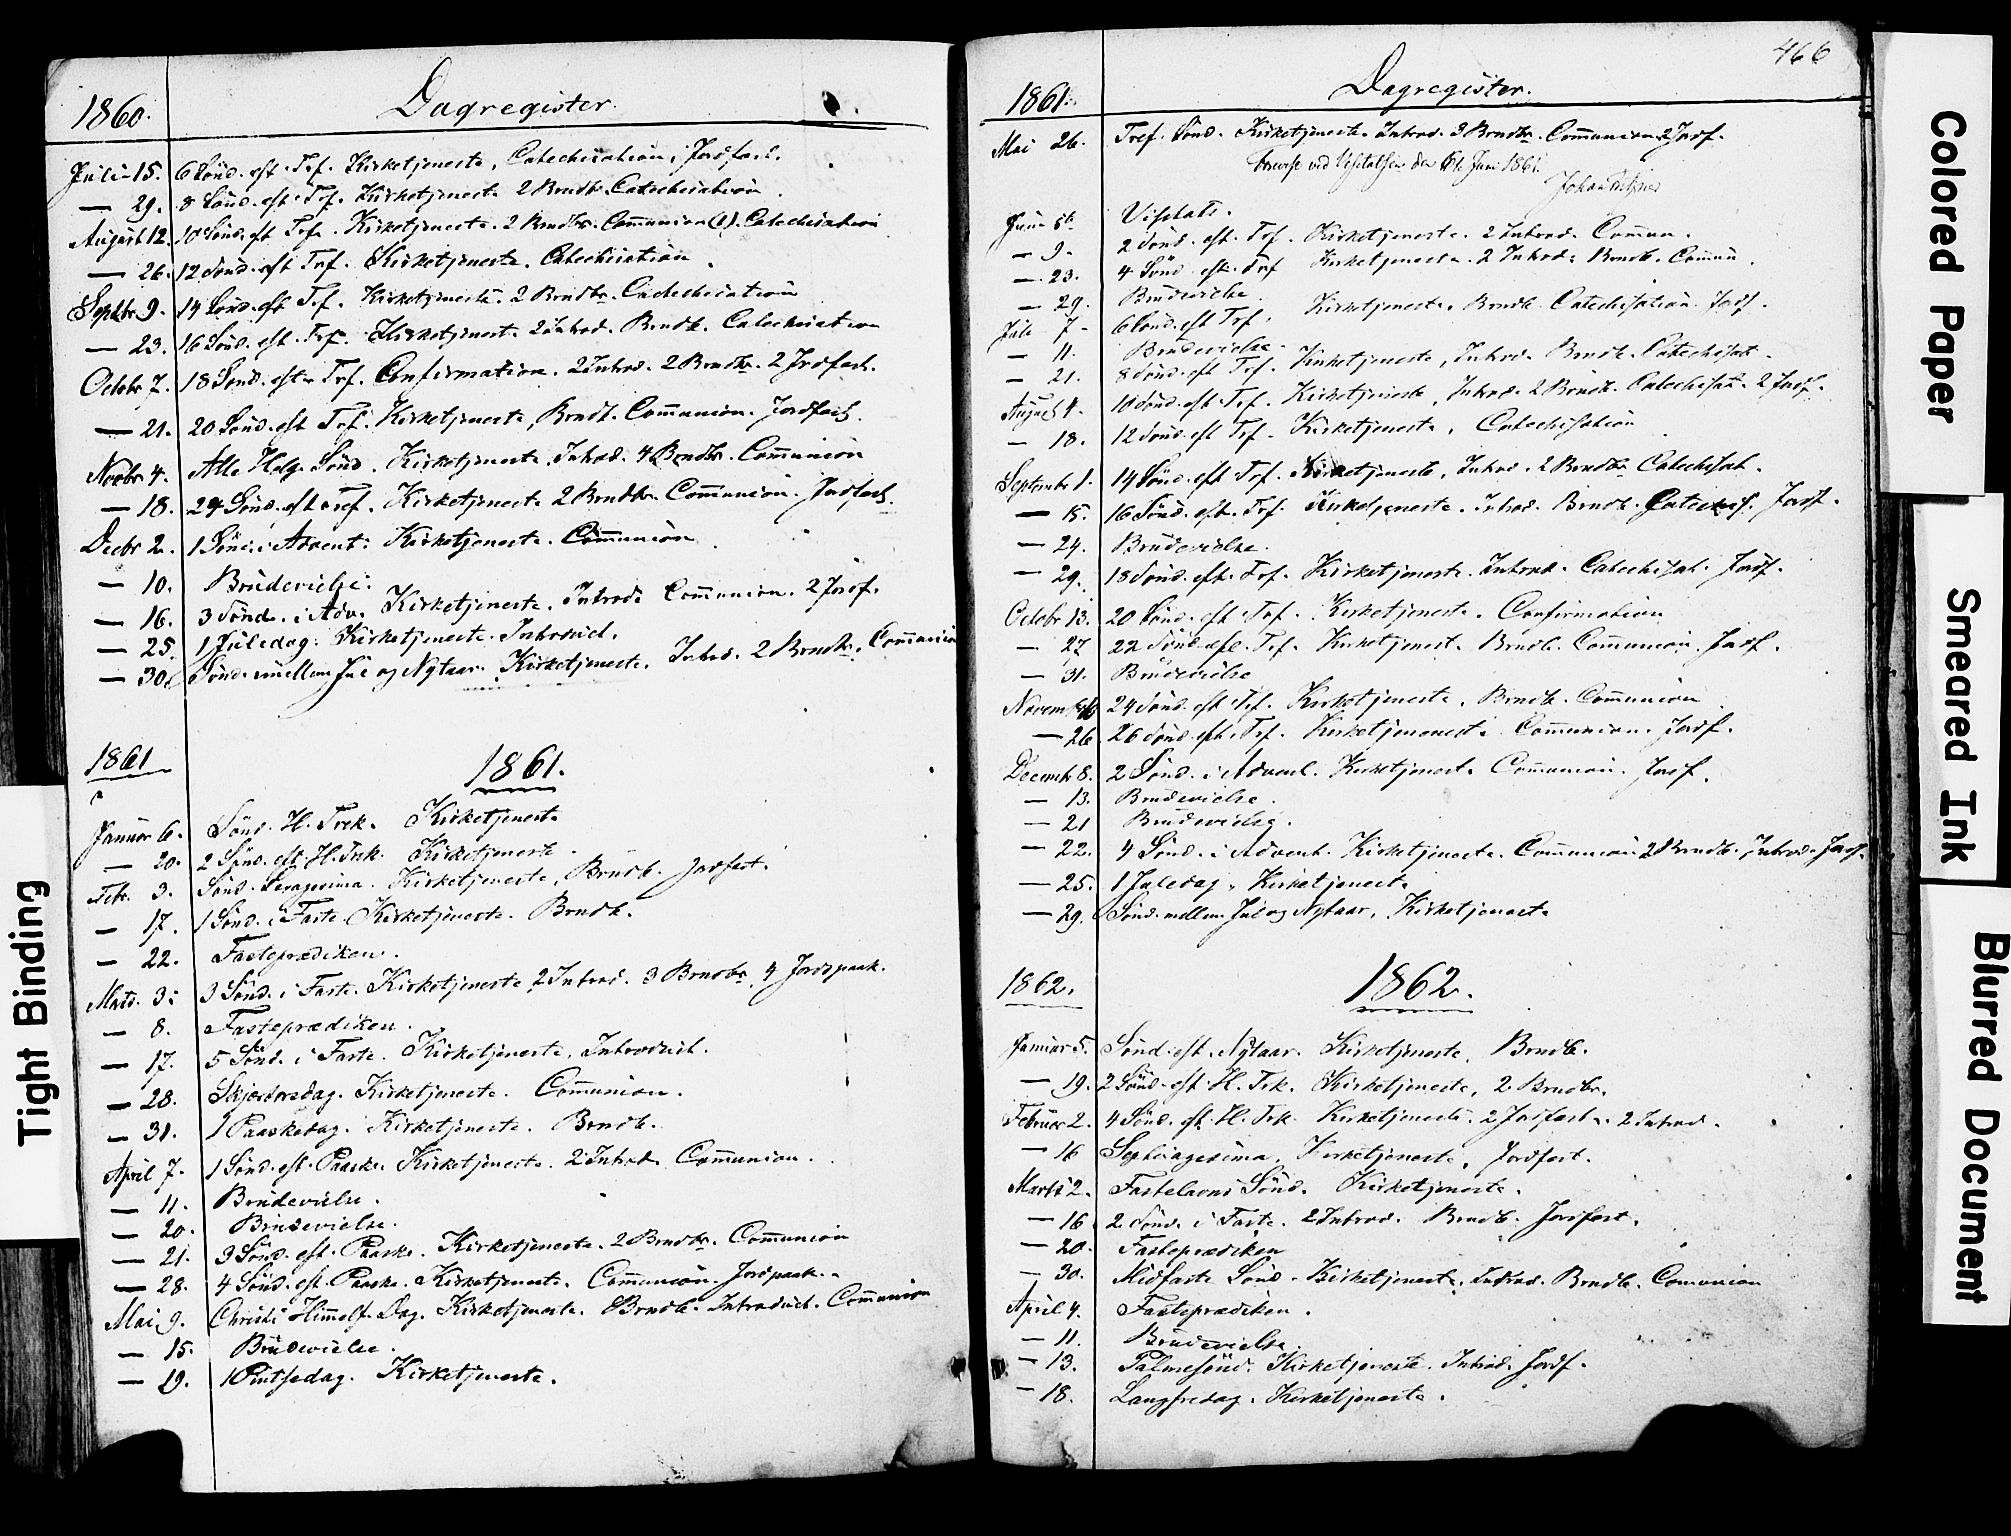 1860. Dagregister.
Juli 15. 6 Sönd. eft. Tref. Kirketjeneste, Catechisation, Jordfæst.
— 29. 8 Sönd. eft. Tref. Kirketjeneste 2 Brndb. Catechisation
August 12. 10 Sönd. eft Tref. Kirketjeneste. 2 Brndb. Communion (1). Catechisation
— 26. 12 Sönd. eft Tref. Kirketjeneste. Catechisation
Septbr 9. 14 Sönd. eft Tref. Kirketjeneste. 2 Brndb. Catechisation
— 23. 16 Sönd. eft. Tref. Kirketjeneste 2 Introd. Brndb. Catechisation
Octobr 7. 18 Sönd. eft. Tref. Confirmation. 2 Introd. 2 Brndb. 2 Jordfæst.
— 21. 20 Sönd. eft Tref. Kirketjeneste, Brndb. Communion. Jordfæst.
Novbr 4. Alle Helg. Sönd. Kirketjeneste. Introd. 4 Brndb. Communion
— 18. 24 Sönd. eft Tref. Kirketjeneste 2 Brndb. Communion. Jordfæst.
Decbr 2. 1 Sönd. i Advent. Kirketjeneste. Communion
— 10. Brudevielse.
— 16. 3 Sönd. i Adv. Kirketjeneste. Introd. Communion. 2 Jordf.
— 25. 1 Juledag. Kirketjeneste. Introduct.
— 30. Sönd. mellem Jul og Nytaar. Kirketjeneste. Introd. 2 Brndb. Communion
1861 1861.
Januar 6. Sönd. H. Trek. Kirketjeneste
— 20. 2 Sönd. eft H. Trk. Kirketjeneste.
Febr. 3. Sönd. Sexagesima. Kirketjeneste, Brndb. Jordfæst.
— 17. 1 Sönd. i Faste. Kirketjeneste. Brndb.
— 22. Fasteprædiken.
Mars. 3. 3 Sönd. i Faste. Kirketjeneste 2 Introd. 3 Brndb. 4 Jordspaak.
— 8. Fasteprædiken.
— 17. 5 Sönd. i Faste. Kirketjeneste, Introduct.
— 28. Skjærtorsdag. Kirketjeneste. Communion.
— 31. 1 Paaskedag. Kirketjeneste. Brndb.
April 7. 1 Sönd. eft. Paaske. Kirketjeneste. 2 Introd. Communion.
— 11. Brudevielse.
— 20. Brudevielse.
— 21. 3 Sönd. eft. Paaske. Kirketjeneste. 2 Brndb. Communion
— 28. 4 Sönd. eft. Paaske. Kirketjeneste. Communion. Jordpaak.
Mai 9. Christi Himmelf. Dag. Kirketjeneste. Brndb. Introduct. Communion
— 15. Brudevielse.
— 19. 1 Pintsedag. Kirketjeneste.
466
1861. Dagregister.
Mai 26. Tref. Sönd. Kirketjeneste. Introd. 3 Brndb. Communion. 2 Jordf.
ved Visitatsen den Juni 1861.
Juni Visitats.
— 9. 2 Sönd. eft. Tref. Kirketjeneste. 2 Introd. Commun.
— 23. 4 Sönd. eft. Tref Kirketjeneste. 2 Introd. Brndb. Commun.
— 29. Brudevielse.
Juli 7. 6 Sönd. eft Tref. Kirketjeneste. Brndb. Catechisation. Jordf.
— 11. Brudevielse.
— 21. 8 Sönd. eft Tref. Kirketjeneste, Introd. Brndb. Catechisat.
August 4. 10 Sönd. eft. Tref. Kirketjeneste, Introd. 2 Brndb. Catechisat. 2 Jordf.
— 18. 12 Sönd. eft Tref. Kirketjeneste. Catechisation
Septembr 1. 14 Sönd. eft Tref. Kirketjeneste, Introd. 2 Brndb. Catechisat.
— 15. 16 Sönd. eft. Tref. Kirketjeneste. Introd. Brndb. Catechis. Jordf.
— 24. Brudevielse.
— 29. 18 Sönd. eft. Tref. Kirketjeneste. Introd. Catechisat. Jordf.
Octobr 13. 20 Sönd. eft Tref. Kirketjeneste. Confirmation
— 27. 22 Sönd. eft. Tref. Kirketjenest. Brndb. Communion. Jordf.
— 31. Brudevielse
Novem 24 Sönd. eft Tref. Kirketjeneste. Brndb. Communion
— 26. 26 Sönd. eft. Tref. Kirketjeneste Communion. Jordf.
Decemb. 8. 2 Sönd. i Advent. Kirketjeneste Communion. Jordf.
— 13. Brudevielse.
— 21 Brudevielse.
— 22. 4 Sönd. i Advent. Kirketjeneste. Communion 2 Brndb. Introd. Jordf.
— 25. 1 Juledag. Kirketjeneste
— 29. Sönd. mellem Jul og Nytaar, Kirketjeneste
1862. 1862.
Januar 5. Sönd. eft. Nytaar. Kirketjeneste. Brndb.
— 19. 2 Sönd. eft H. Trk. Kirketjeneste, 2 Brndbr.
Februar 2. 4 Sönd. eft. H. Trk. Kirketjeneste. 2 Jordfæst. 2 Introd.
— 16 Septuagesima. Kirketjeneste, Jordfæst.
Marts 2. Fastelavns Sönd. Kirketjeneste.
— 16. 2 Sönd. i Faste. 2 Introd. Brndb. Jordfæst.
— 20. Fasteprædiken
— 30. Midfaste Sönd. Kirketjeneste. Introd. Brndb. Comunion
April 4. Fasteprædiken.
— 11. Brudevielse
— 13. Palmesönd. Kirketjeneste. Introd. Jordf.
— 18. Langfredag. Kirketjeneste.
Tight Binding
Colored Paper
Smeared Ink
Blurred Document